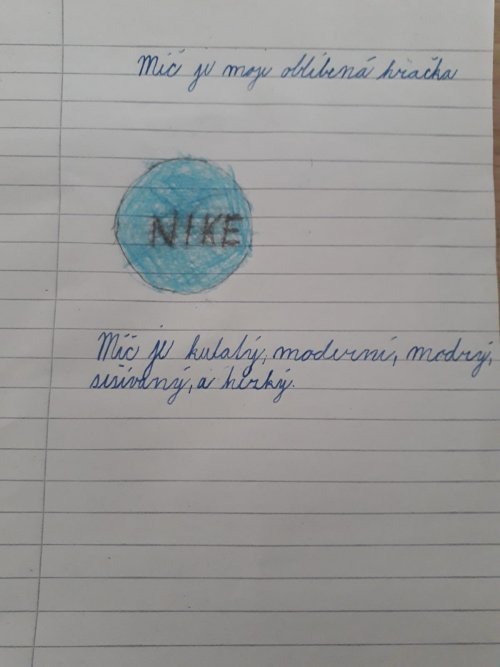 Míč je moje oblíbená hračka
NIKE
Míč je kulatý, moderní, modrý,
sešívaný, a hezký.